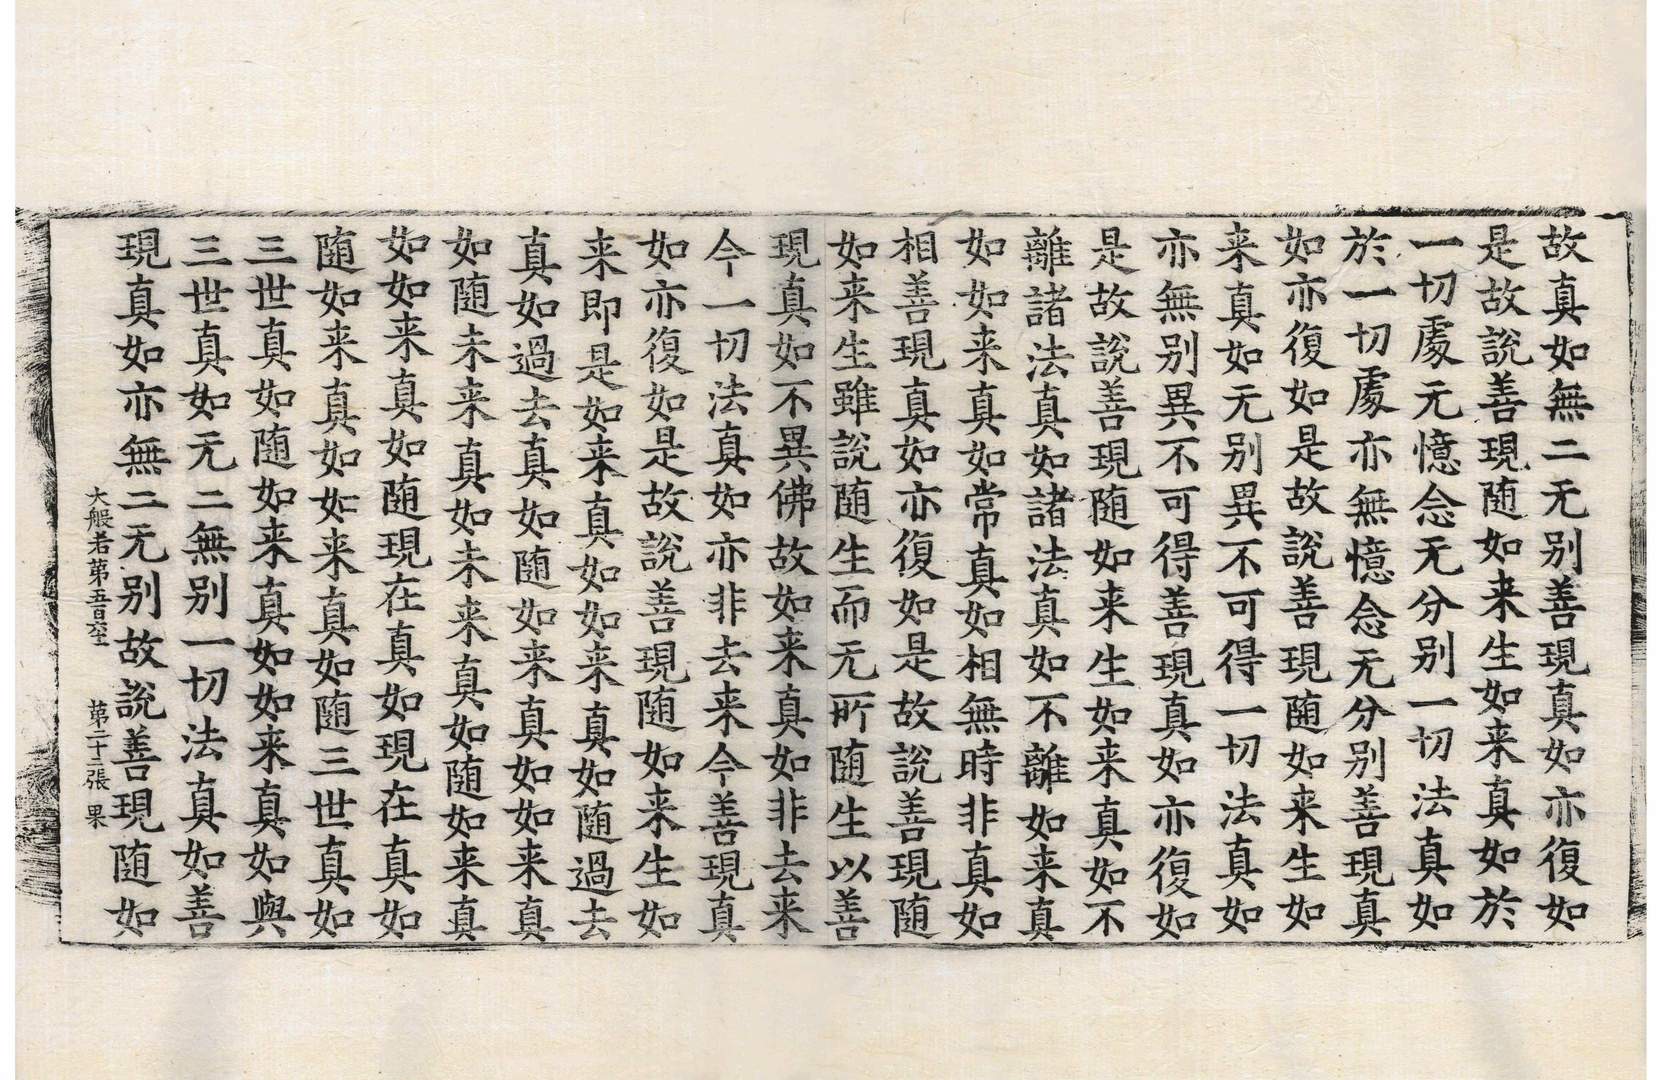 故真如無二无别善現真如亦復如
是故說善現随如来生如来真如於
一切處无憶念无分别一切法真如
於一切處亦無憶念无分别善現真
如亦復如是故說善現随如来生如
来真如无别異不可得一切法真如
亦無别異不可得善現真如亦復如
是故說善現随如来生如来真如不
離諸法真如諸法真如不離如来真
如如来真如常真如相無時非真如
相善現真如亦復如是故說善現随
如来生雖說随生而无所随生以善
現真如不異佛故如来真如非去来
今一切法真如亦非去来今善現真
如亦復如是故說善現随如来生如
来即是如来真如如来真如随過去
真如過去真如随如来真如如来真
如随未来真如未来真如随如来真
如如来真如随現在真如現在真如
随如来真如如来真如随三世真如
三世真如随如来真如如来真如與
三世真如无二無别一切法真如善
現真如亦無二无别故說善現随如
大般若第五百六十一 第二十二張 果